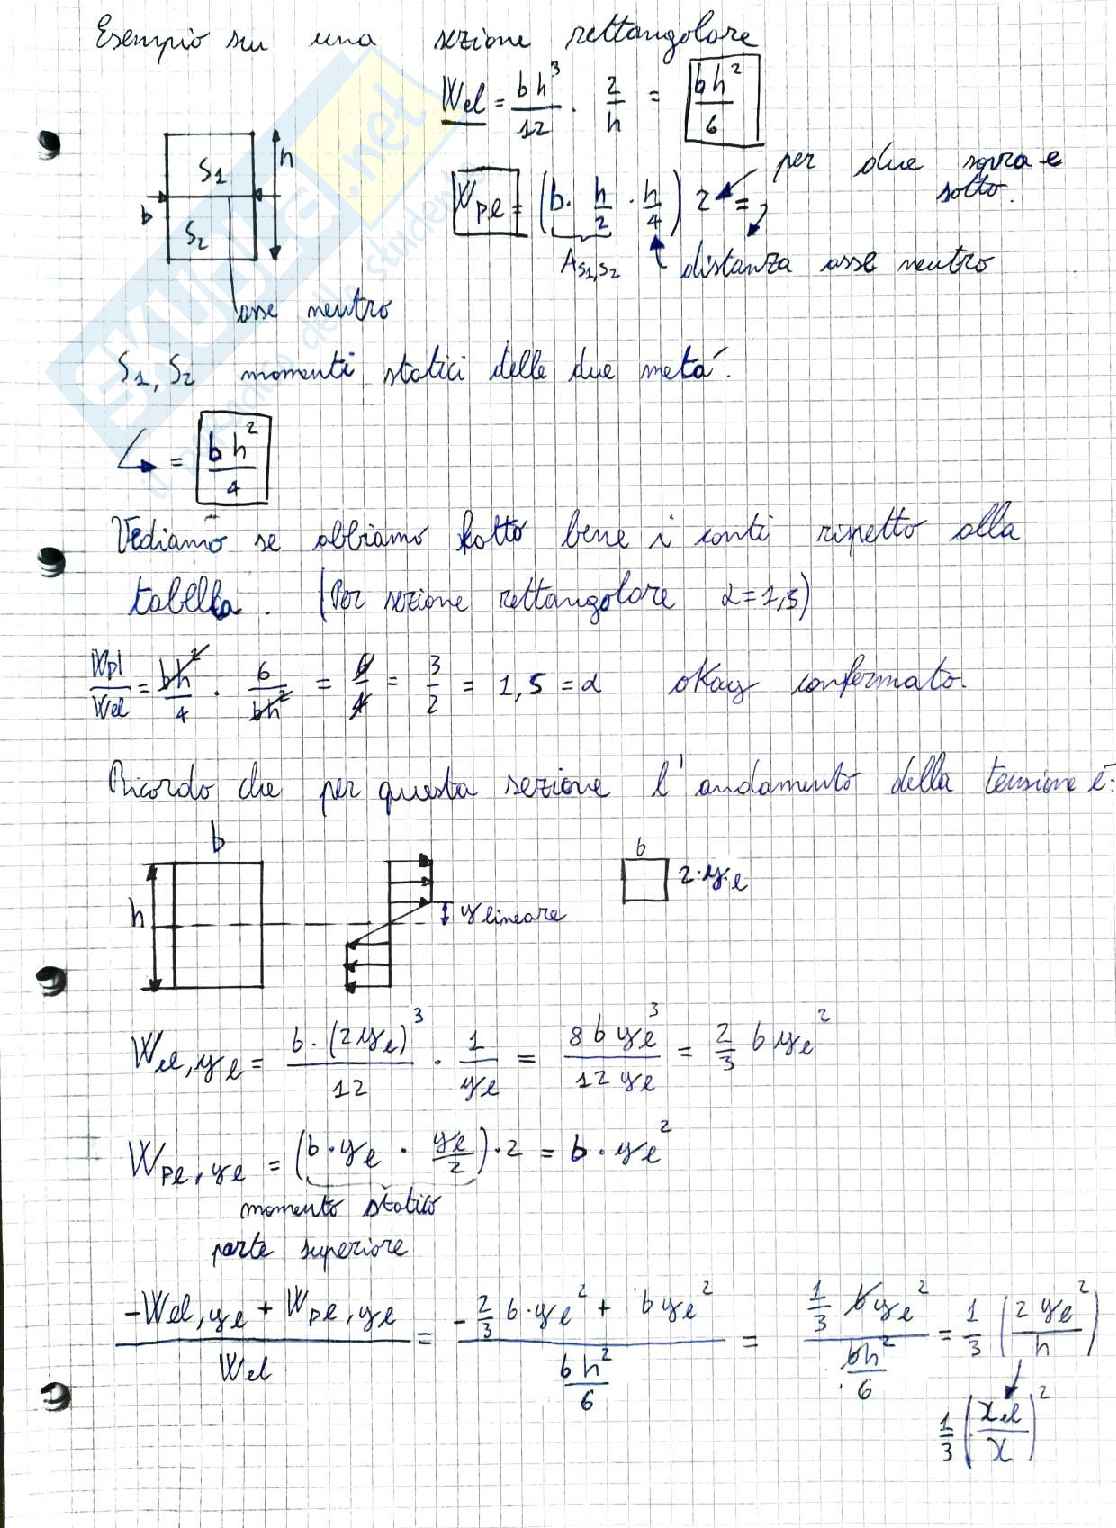 Esempio su una sezione rettangolare
Wel = bh³/12 · 2/h = bh²/6
S1
S2
h
b
asse neutro
Wpl = (b · h/2 · h/4) 2 =
per due sopra e sotto.
AS1,S2
distanza asse neutro
S1, S2 momenti statici delle due metà.
= bh²/4
Vediamo se abbiamo fatto bene i conti rispetto alla
tabella. (Per sezione rettangolare α=1,5)
Wpl/Wel = bh²/4 · 6/bh² = 6/4 = 3/2 = 1,5 = α okay confermato.
Ricordo che per questa sezione l'andamento della tensione è:
b
h
y lineare
b
2·ye
Wel,ye = b·(2ye)³/12 · 1/ye = 8bye³/12ye = 2/3 bye²
Wpl,ye = (b·ye · ye/2)·2 = b·ye²
momento statico
parte superiore
-Wel,ye + Wpl,ye/Wel = -2/3 b·ye² + bye²/bh²/6 = 1/3 bye²/bh²/6 = 1/3 (2ye²/h)
1/3 (xel/x)²
SKUOLA.net